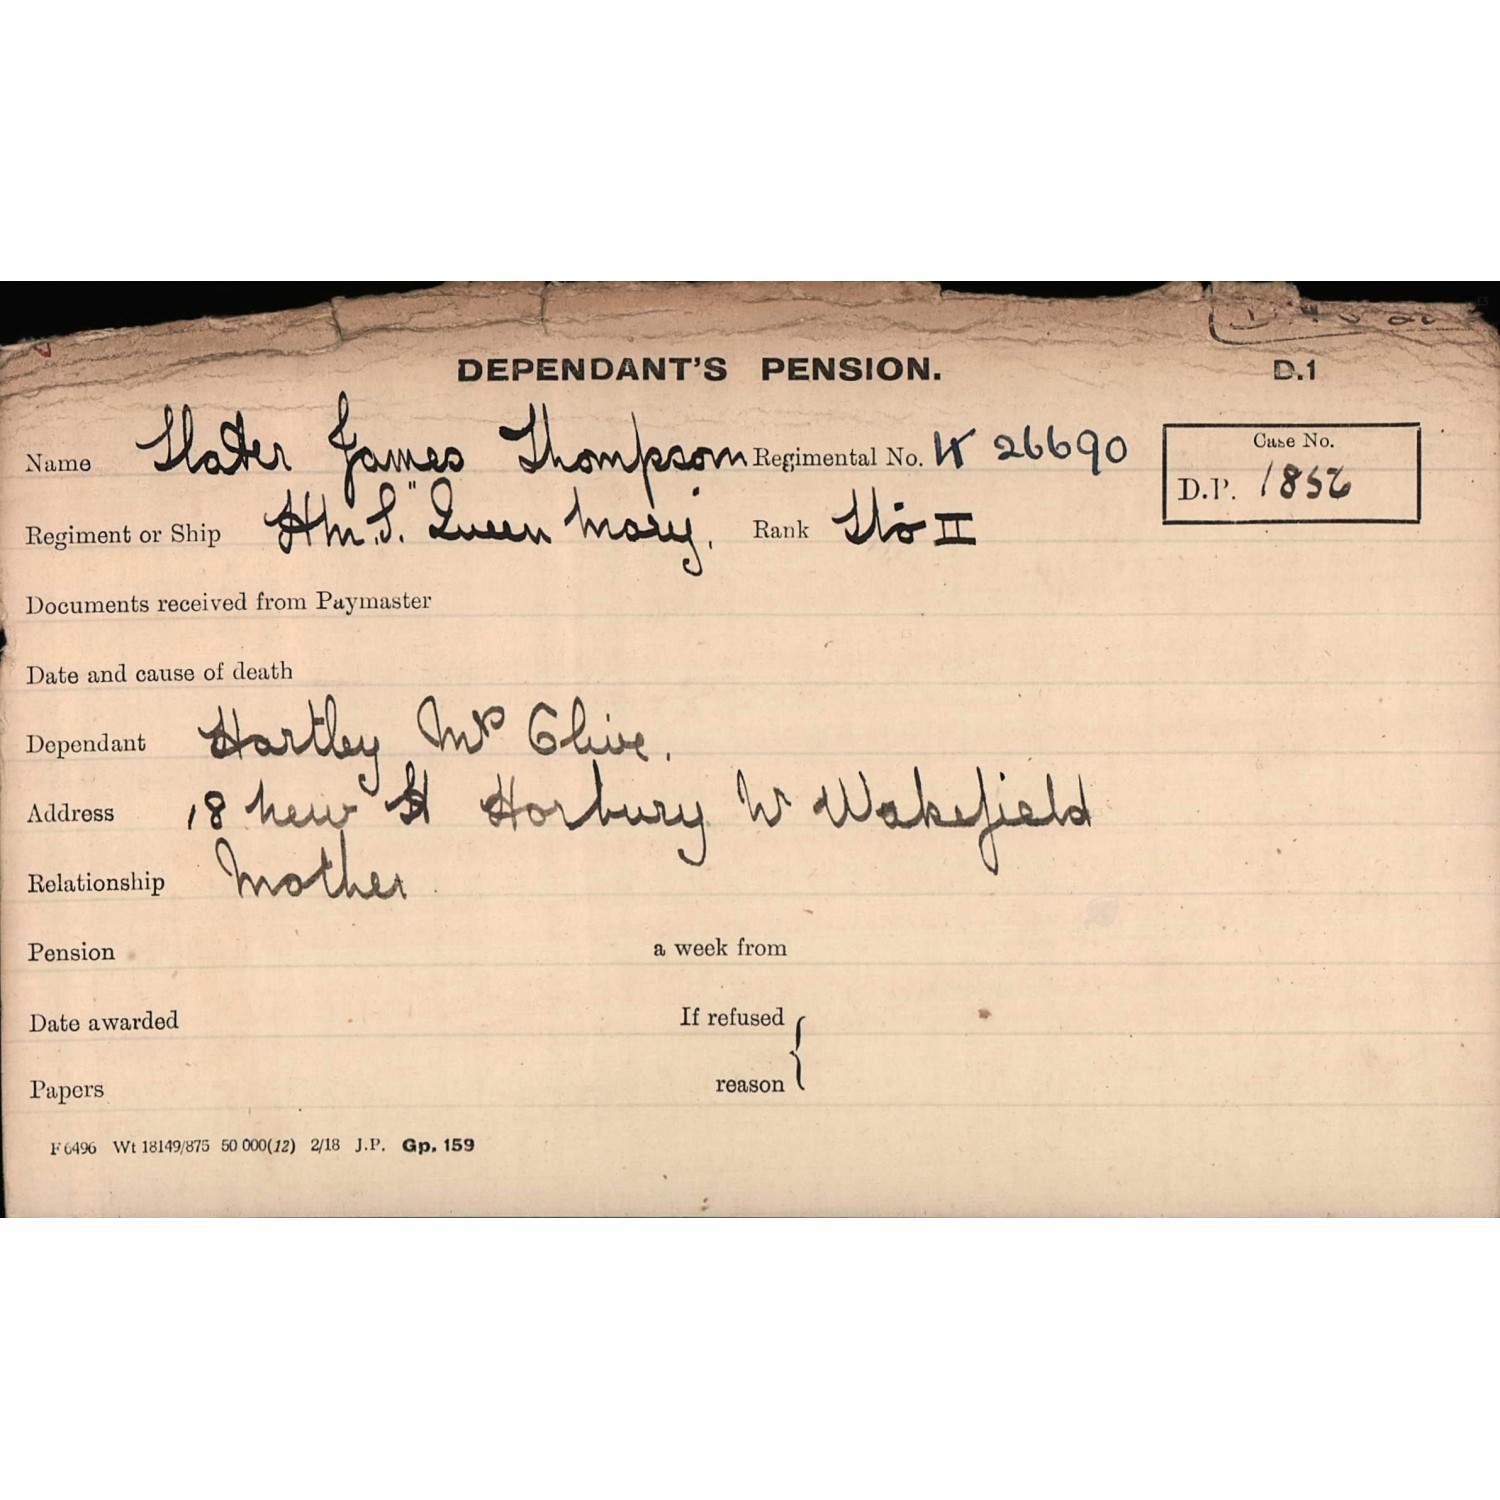 DEPENDANT'S PENSION. D.1
Name Slater James Thompson Regimental No. K 26690
Case No.
D.P. 1856
Regiment or Ship H.M.S. "Queen Mary". Rank Sto II
Documents received from Paymaster
Date and cause of death
Dependant Hartley Mrs Clive.
Address 18 New St Horbury Nr Wakefield
Relationship Mother.
Pension a week from
Date awarded If refused
Papers reason
F6496 Wt 18149/875 50 000(12) 2/18 J.P. Gp. 159